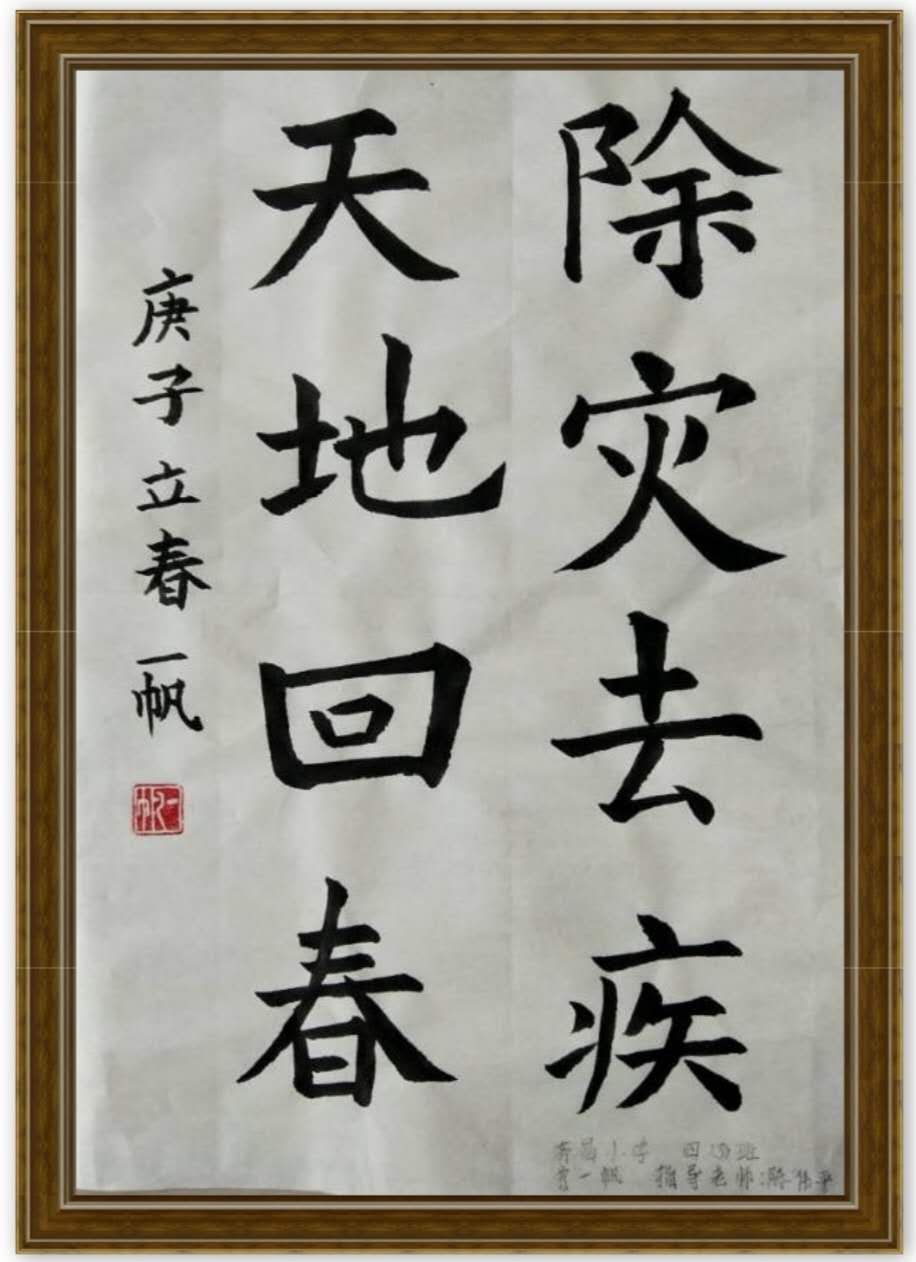 除灾去疾
天地回春
庚子立春 一帆
一帆
小学 四 班
一帆 指导老师:陈伟平